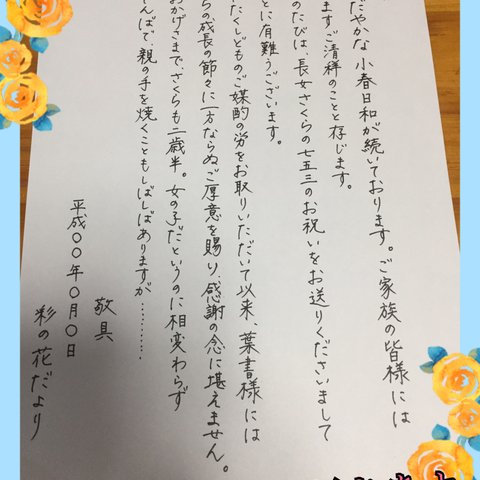 だやかな小春日和が続いております。ご家族の皆様には
ますご清祥のことと存じます。
のたびは、長女さくらの七五三のお祝いをお送りくださいまして
とに有難うございます。
たくしどものご媒酌の労をお取りいただいて以来、葉書様には
らの成長の節々に一方ならぬご厚意を賜り、感謝の念に堪えません。
おかげさまで、さくらも二歳半。女の子だというのに相変わらず
んばで、親の手を焼くこともしばしばありますが…………
敬具
平成〇〇年〇月〇日
彩の花だより